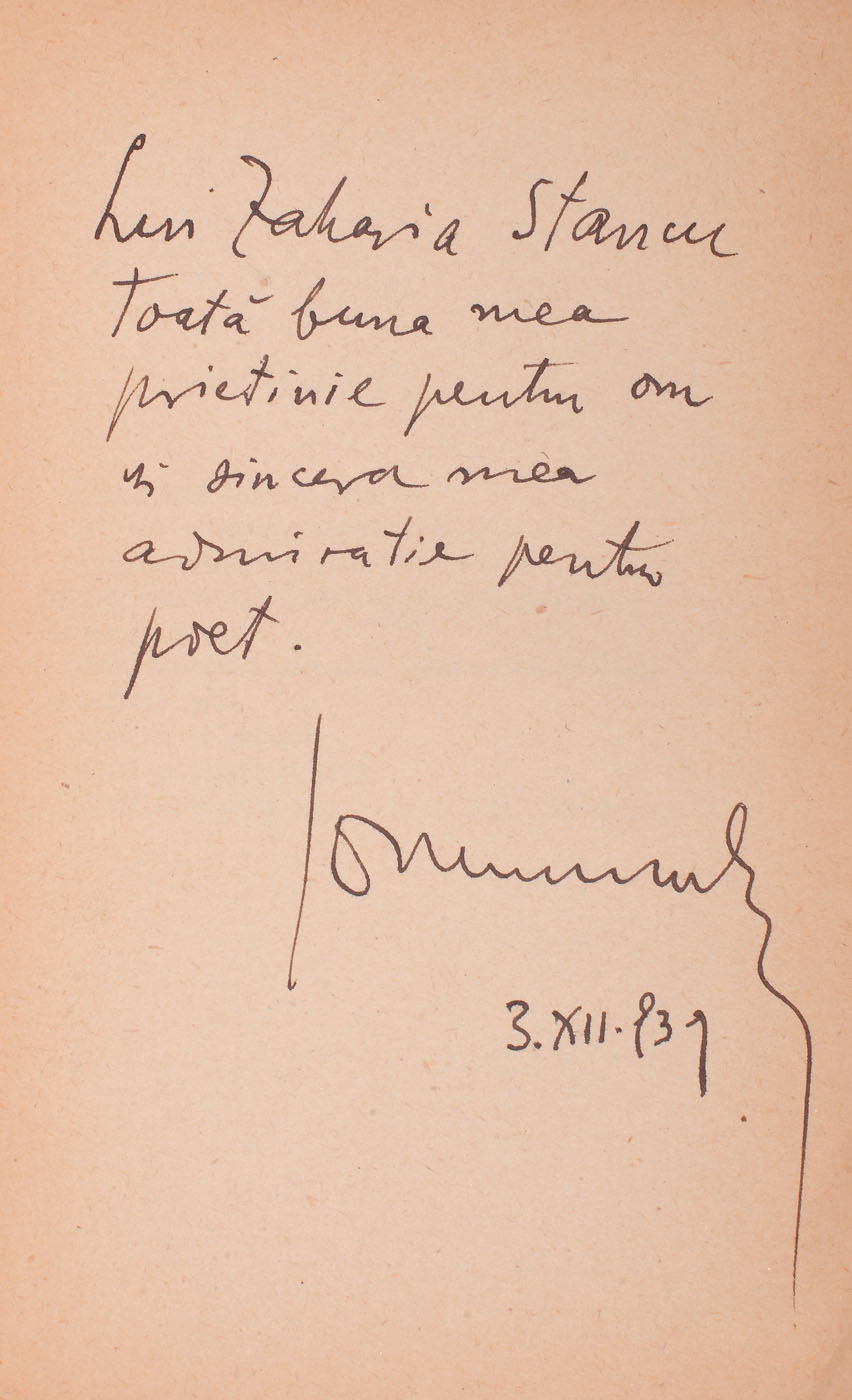 Lui Zaharia Stancu
Toată buna mea
prietinie pentru om
și sincera mea
admiratie pentru
poet.
3.XII.939